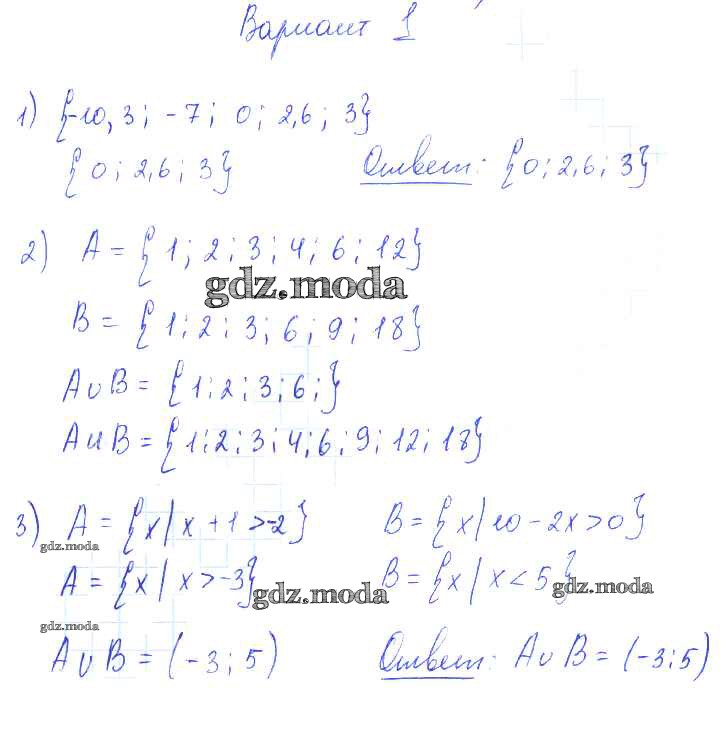 Вариант 1
1) {-10,3; -7; 0; 2,6; 3}
{0; 2,6; 3} Ответ: {0; 2,6; 3}
2) A = {1; 2; 3; 4; 6; 12}
gdz.moda
B = {1; 2; 3; 6; 9; 18}
A∪B = {1; 2; 3; 6;}
AиB = {1; 2; 3; 4; 6; 9; 12; 18}
3) A = {x/x+1>-2} B = {x/10-2x>0}
gdz.moda
A = {x/x>-3} B = {x/x<5}
gdz.moda gdz.moda
gdz.moda
A∪B = (-3; 5) Ответ: A∪B = (-3; 5)